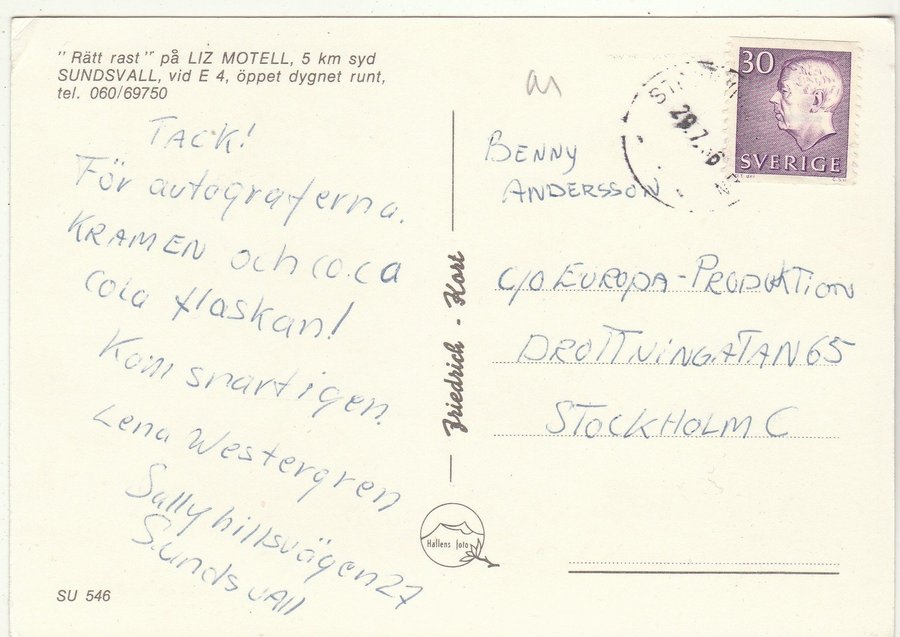 " Rätt rast " på LIZ MOTELL, 5 km syd
SUNDSVALL, vid E 4, öppet dygnet runt,
tel. 060/69750
TACK!
För autograferna.
KRAMEN och co.ca
cola flaskan!
Kom snart igen.
Lena Westergren
Sallyhillsvägen 27
Sundsvall
SU 546
Friedrich - Kort
Hallens foto
30
SVERIGE
BENNY
ANDERSSON
c/o EUROPA-PRODUKTION
DROTTNINGATAN 65
STOCKHOLM C